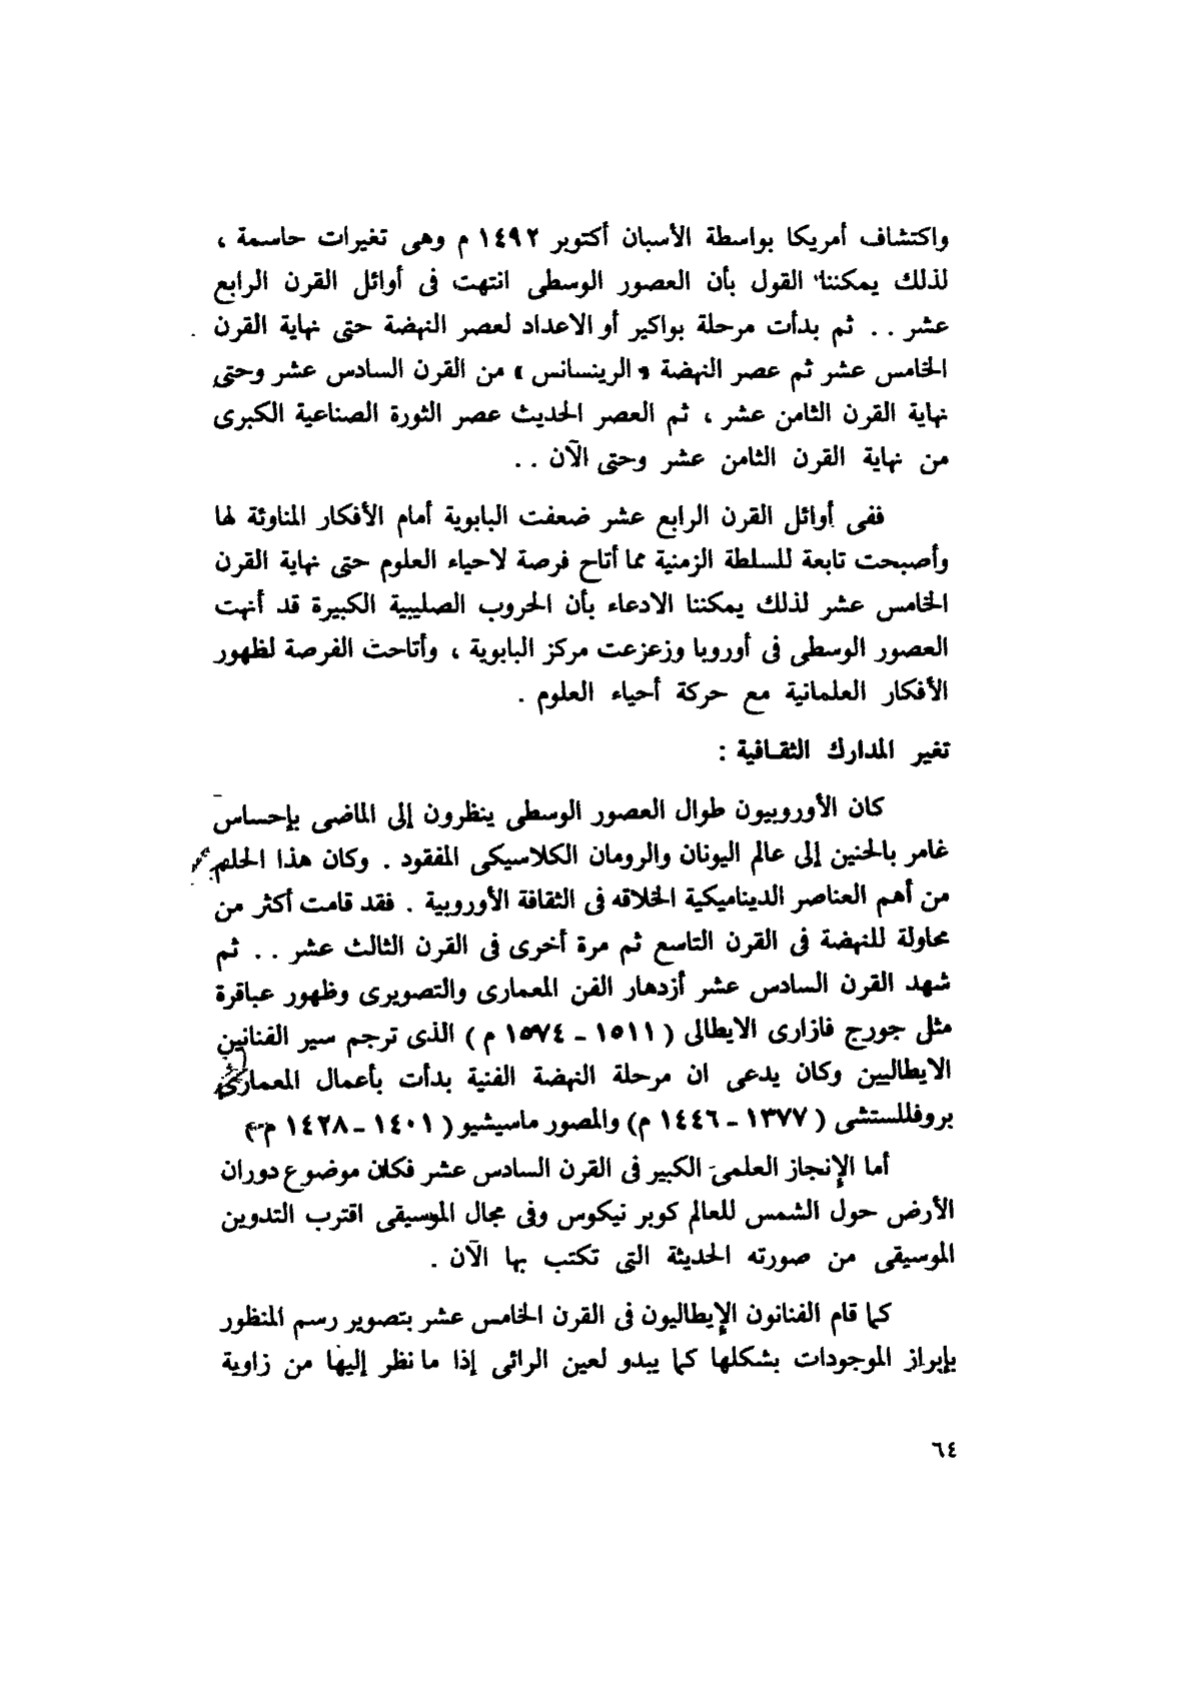 واكتشاف أمريكا بواسطة الأسبان أكتوبر ١٤٩٢ م وهى تغيرات حاسمة ،
لذلك يمكننا القول بأن العصور الوسطى انتهت فى أوائل القرن الرابع
عشر . . ثم بدأت مرحلة بواكير أو الاعداد لعصر النهضة حتى نهاية القرن
الخامس عشر ثم عصر النهضة « الرينسانس » من القرن السادس عشر وحتى
نهاية القرن الثامن عشر ، ثم العصر الحديث عصر الثورة الصناعية الكبرى
من نهاية القرن الثامن عشر وحتى الآن . .
ففى أوائل القرن الرابع عشر ضعفت البابوية أمام الأفكار المناوئة لها
وأصبحت تابعة للسلطة الزمنية مما أتاح فرصة لاحياء العلوم حتى نهاية القرن
الخامس عشر لذلك يمكننا الادعاء بأن الحروب الصليبية الكبيرة قد أنهت
العصور الوسطى فى أوروبا وزعزعت مركز البابوية ، وأتاحت الفرصة لظهور
الأفكار العلمانية مع حركة أحياء العلوم .
تغير المدارك الثقافية :
كان الأوروبيون طوال العصور الوسطى ينظرون إلى الماضى بإحساس
غامر بالحنين إلى عالم اليونان والرومان الكلاسيكى المفقود . وكان هذا الحلم
من أهم العناصر الديناميكية الخلاقه فى الثقافة الأوروبية . فقد قامت أكثر من
محاولة للنهضة فى القرن التاسع ثم مرة أخرى فى القرن الثالث عشر . . ثم
شهد القرن السادس عشر أزدهار الفن المعمارى والتصويرى وظهور عباقرة
مثل جورج فازارى الايطالى ( ١٥١١ - ١٥٧٤ م ) الذى ترجم سير الفنانين
الايطاليين وكان يدعى ان مرحلة النهضة الفنية بدأت بأعمال المعمارى
بروفللستشى ( ١٣٧٧ - ١٤٤٦ م) والمصور ماسيشيو ( ١٤٠١ - ١٤٢٨ م )
أما الإنجاز العلمى الكبير فى القرن السادس عشر فكان موضوع دوران
الأرض حول الشمس للعالم كوبر نيكوس وفى مجال الموسيقى اقترب التدوين
الموسيقى من صورته الحديثة التى تكتب بها الآن .
كما قام الفنانون الإيطاليون فى القرن الخامس عشر بتصوير رسم المنظور
بإبراز الموجودات بشكلها كما يبدو لعين الرائى إذا ما نظر إليها من زاوية
٦٤